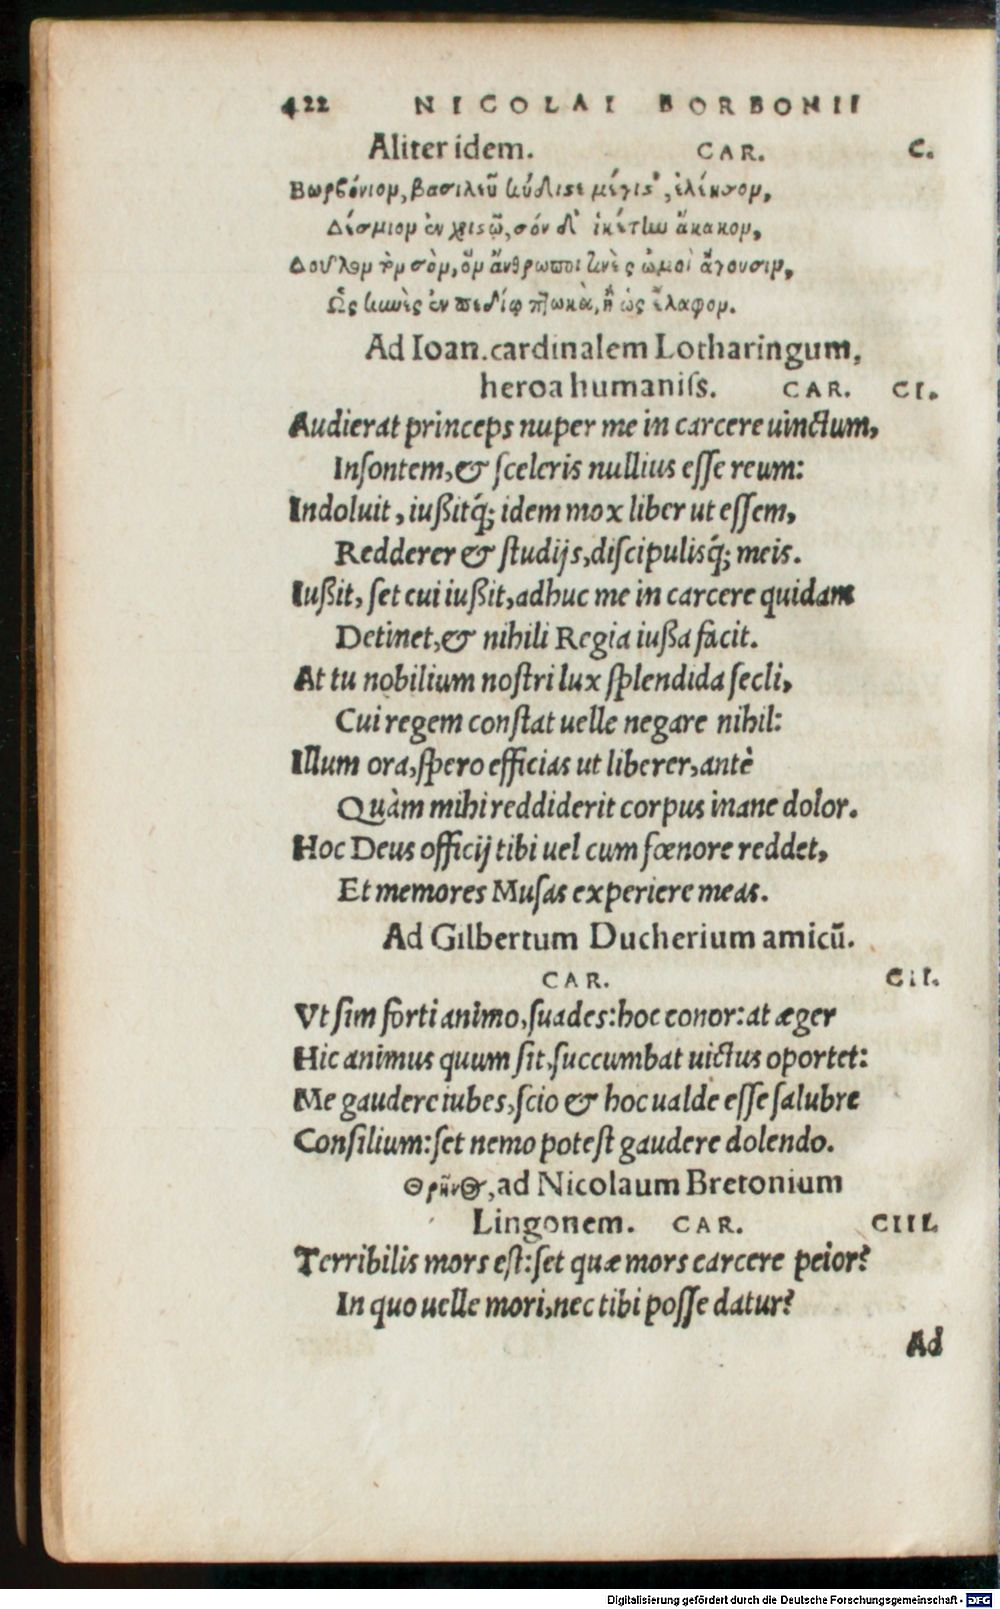 422 NICOLAI BORBONII
Aliter idem. CAR. C.
Βορβόνιον, βασιλεῦ κύδιστε μέγιστ', ἐλέησον,
Δέσμιον ἐν χριστῷ, σόν δ' ἱκέτην ἄκακον,
Δοῦλον τὸν σὸν, ὃν ἄνθρωποι τινὲς ὠμοὶ ἄγουσιν,
Ὡς κύνες ἐν πεδίῳ πτῶκα, ἢ ὡς ἔλαφον.
Ad Ioan. cardinalem Lotharingum,
heroa humaniſs. CAR. CI.
Audierat princeps nuper me in carcere uinctum,
Inſontem, & ſceleris nullius eſſe reum:
Indoluit, iußitq́; idem mox liber ut eſſem,
Redderer & ſtudijs, diſcipulisq́; meis.
Iußit, ſet cui iußit, adhuc me in carcere quidam
Detinet, & nihili Regia iußa facit.
At tu nobilium noſtri lux ſplendida ſecli,
Cui regem conſtat uelle negare nihil:
Illum ora, ſpero efficias ut liberer, antè
Quàm mihi reddiderit corpus inane dolor.
Hoc Deus officij tibi uel cum fœnore reddet,
Et memores Muſas experiere meas.
Ad Gilbertum Ducherium amicũ.
CAR. CII.
Vt ſim forti animo, ſuades: hoc conor: at æger
Hic animus quum ſit, ſuccumbat uictus oportet:
Me gaudere iubes, ſcio & hoc ualde eſſe ſalubre
Conſilium: ſet nemo poteſt gaudere dolendo.
Θρῆνος, ad Nicolaum Bretonium
Lingonem. CAR. CIII.
Terribilis mors eſt: ſet quæ mors carcere peior?
In quo uelle mori, nec tibi poſſe datur?
Ad
Digitalisierung gefördert durch die Deutsche Forschungsgemeinschaft - DFG